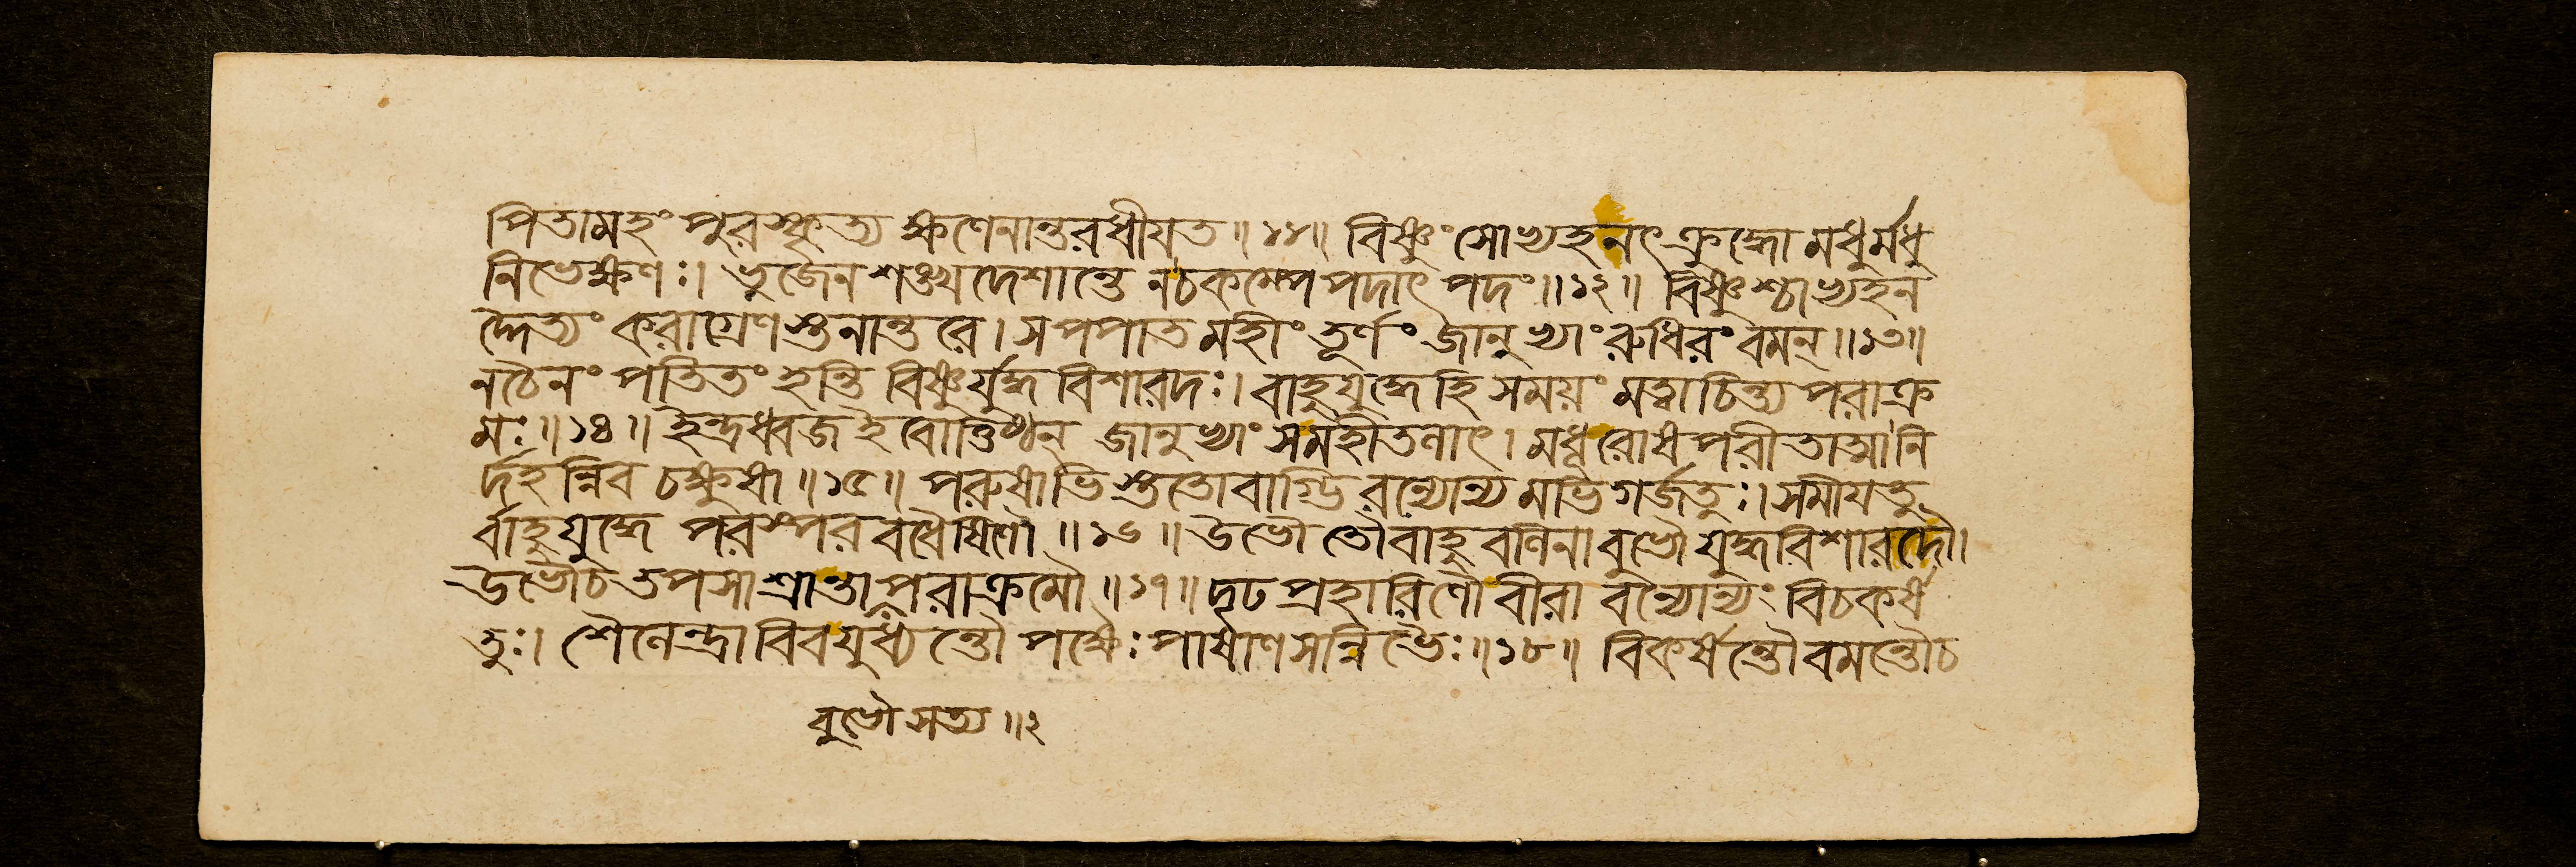 পিতামহং পুরস্কৃত্য ক্ষণেনান্তরধীযত॥১১॥ বিষ্ণুং সোভ্যহনৎ ক্রুদ্ধো মধুর্মধু
নিভেক্ষণঃ। ভুজেন শঙ্খদেশান্তে নচকম্পে পদাৎ পদং॥১২॥ বিষ্ণুশ্চাভ্যহন
দ্দৈত্যং করাগ্রেণ স্তনান্তরে। স পপাত মহীং তূর্ণং জানুভ্যাং রুধিরং বমন্॥১৩॥
নচৈনং পতিতং হন্তি বিষ্ণুর্যুদ্ধবিশারদঃ। বাহুযুদ্ধে হি সময়ং মত্বাচিন্ত্যপরাক্র
মঃ॥১৪॥ ইন্দ্রধ্বজ ইবোত্তিষ্ঠন্ জানুভ্যাং সমহীতলাৎ। মধূ রোষপরীতাত্মা নি
র্দহন্নিব চক্ষুষা॥১৫॥ পরুষাভিস্ততো বাগ্ভিরন্যোন্যমভিগর্জতুঃ। সমীযতু
র্বাহুযুদ্ধে পরস্পরবধৈষিণৌ॥১৬॥ উভৌ তৌ বাহুবলিনাবুভৌ যুদ্ধবিশারদৌ।
উভৌ চ তপসা শ্রান্তা পরাক্রমৌ॥১৭॥ দৃঢপ্রহারিণৌ বীরাবন্যোন্যং বিচকর্ষ
তুঃ। শৈলেন্দ্রাবিব যুধ্যন্তৌ পক্ষৈঃ পাষাণসন্নিভৈঃ॥১৮॥ বিকর্ষন্তৌ বমন্তৌ চ
বুভৌ সত্য॥২